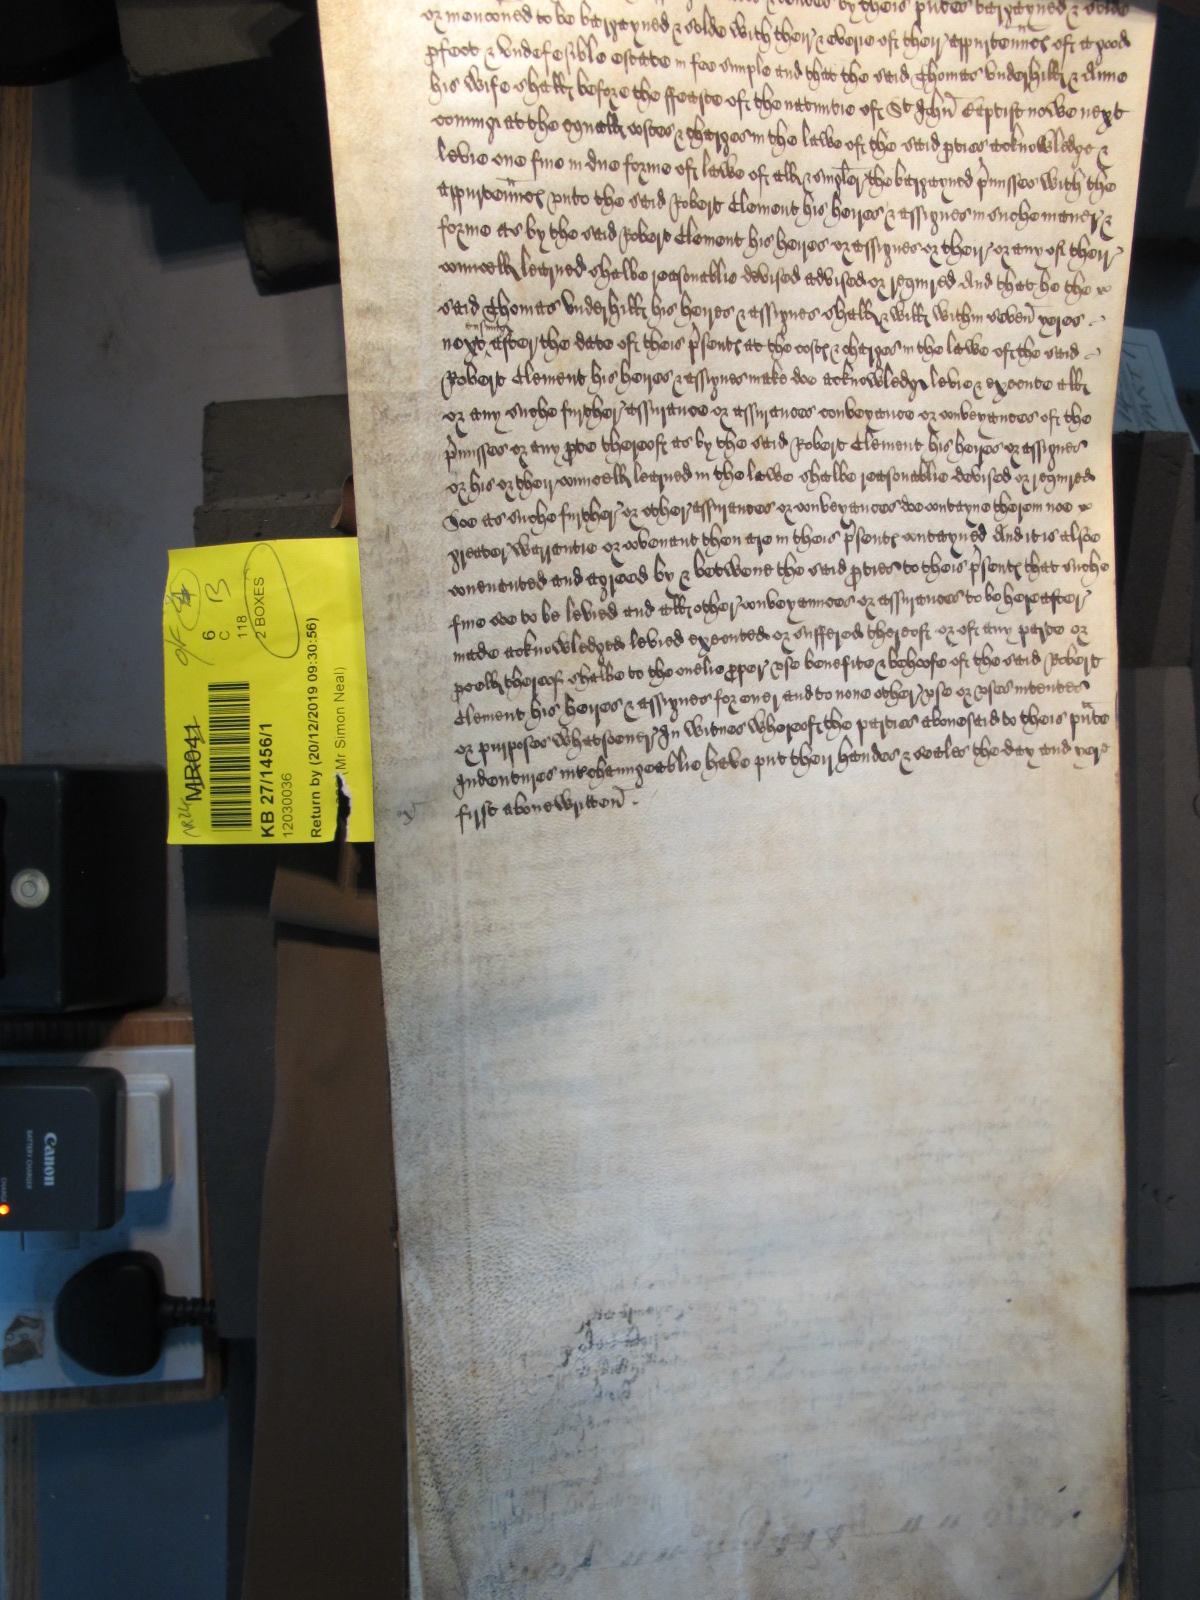 or menconed to be bargayned & solde with their & everie of their appurtennces of a good
pfect & undefezible estate in fee simple and that the said Thomas Underhill & Anne
his wife shall before the ffeaste of the nativitie of St John Baptist nowe next
coming at the equall costes & charges in the lawe of the said pties acknowledge &
levie one fine in due forme of lawe of all & singler the bargayned pmisses with the
appurtennces unto the said Robert Clement his heires & assignes in suche maner &
forme as by the said Robert Clement his heires or assignes or their or any of their
councell learned shalbe reasonablie devised advised or required And that he the
said Thomas Underhill his heires & assignes shall & will within seven yeres
next ensuing after the date of theis psentes at the costes & charges in the lawe of the said
Robert Clement his heires & assignes make doe acknowledge levie & execute all
or any suche further assurance or assurances conveyance or conveyances of the
pmisses or any pte thereof as by the said Robert Clement his heires or assignes
or his or their councell learned in the lawe shalbe reasonablie devised or required
Soe as suche further or other assurances or conveyances doe contayne therein noe
greater warrantie or covenant then are in theis psentes contayned And it is alsoe
covenanted and agreed by & betwene the said pties to theis psentes that suche
fine soe to be levied and all other conveyannces or assurances to be hereafter
made acknowledged levied executed or suffered thereof or of any parte or
pcell thereof shalbe to the onelie pper use benefite & behoofe of the said Robert
Clement his heires & assignes for ever and to none other use or uses intentes
or purposes whatsoever In witnes whereof the parties abovesaid to theis pnte
Indentures interchaungeablie have put their handes & seales the day and yere
first above written
MR041
KB 27/1456/1
12030036
Return by (20/12/2019 09:30:56)
(Mr Simon Neal)
6
C
118
2 BOXES
B
Canon
BATTERY CHARGER
CHARGE